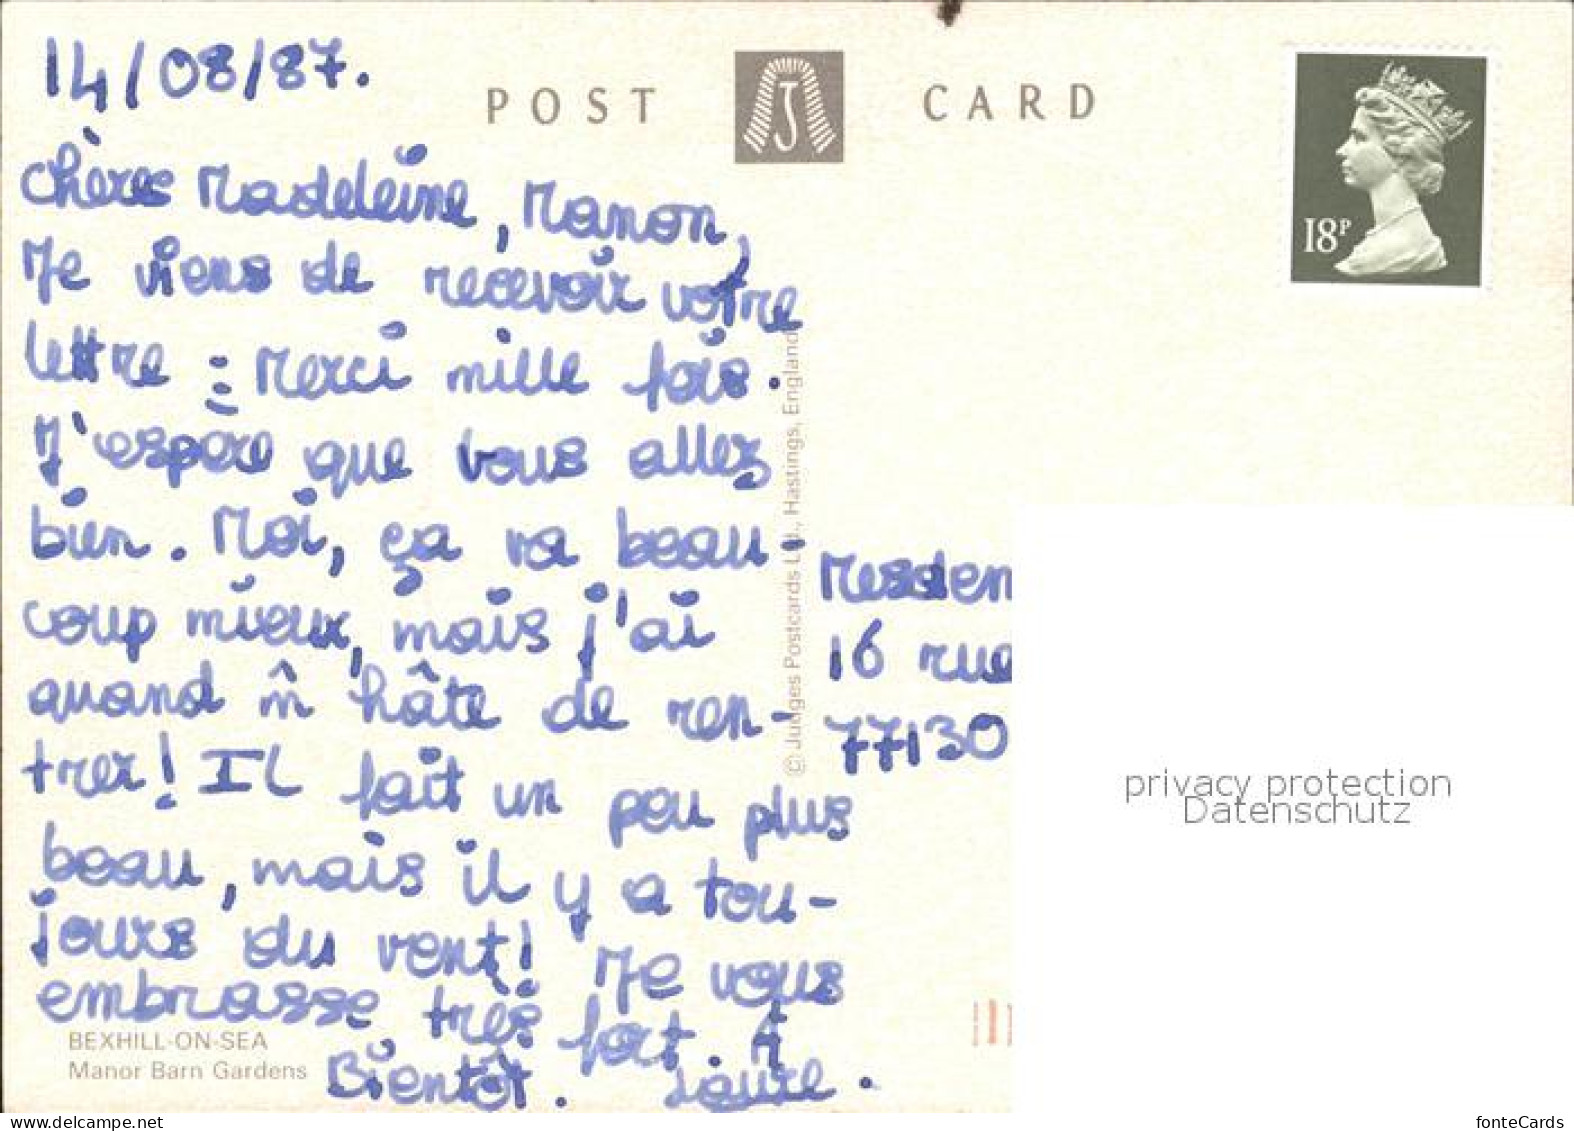 14/08/87.
POST CARD
J
18P
Chères Madeleine, Manon,
Je viens de recevoir votre
lettre : Merci mille fois.
J'espère que vous allez
bien. Moi, ça va beau-
coup mieux, mais j'ai
quand m̂ hâte de ren-
trer! Il fait un peu plus
beau, mais il y a tou-
jours du vent! Je vous
embrasse très fort. A
Bientôt. Laure.
BEXHILL-ON-SEA
Manor Barn Gardens
© Judges Postcards Ltd., Hastings, England
Mesdem
16 rue
77130
privacy protection
Datenschutz
www.delcampe.net
fonteCards